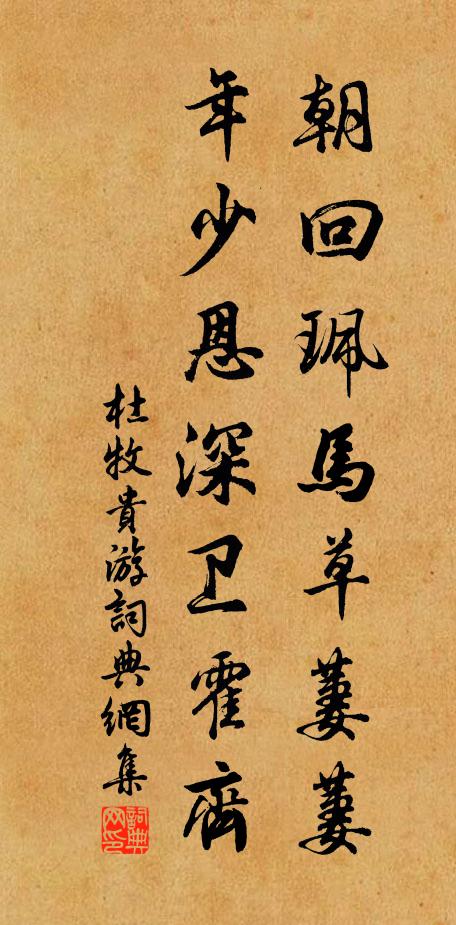 朝回珮馬草萋萋
年少恩深卫霍齊
杜牧貴游詞典網集
詞典网印